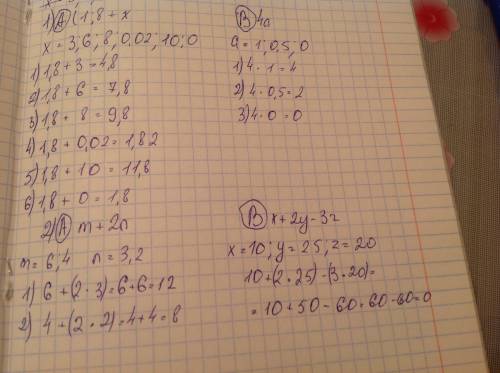 1) А (1,8 + x
x = 3; 6; 8; 0,02; 10; 0
1) 1,8 + 3 = 4,8
2) 1,8 + 6 = 7,8
3) 1,8 + 8 = 9,8
4) 1,8 + 0,02 = 1,82
5) 1,8 + 10 = 11,8
6) 1,8 + 0 = 1,8
2) А m + 2n
m = 6; 4 n = 3, 2
1) 6 + (2 · 3) = 6 + 6 = 12
2) 4 + (2 · 2) = 4 + 4 = 8
В 4a
a = 1; 0,5; 0
1) 4 · 1 = 4
2) 4 · 0,5 = 2
3) 4 · 0 = 0
В x + 2y - 3z
x = 10; y = 25; z = 20
10 + (2 · 25) - (3 · 20) =
= 10 + 50 - 60 = 60 - 60 = 0